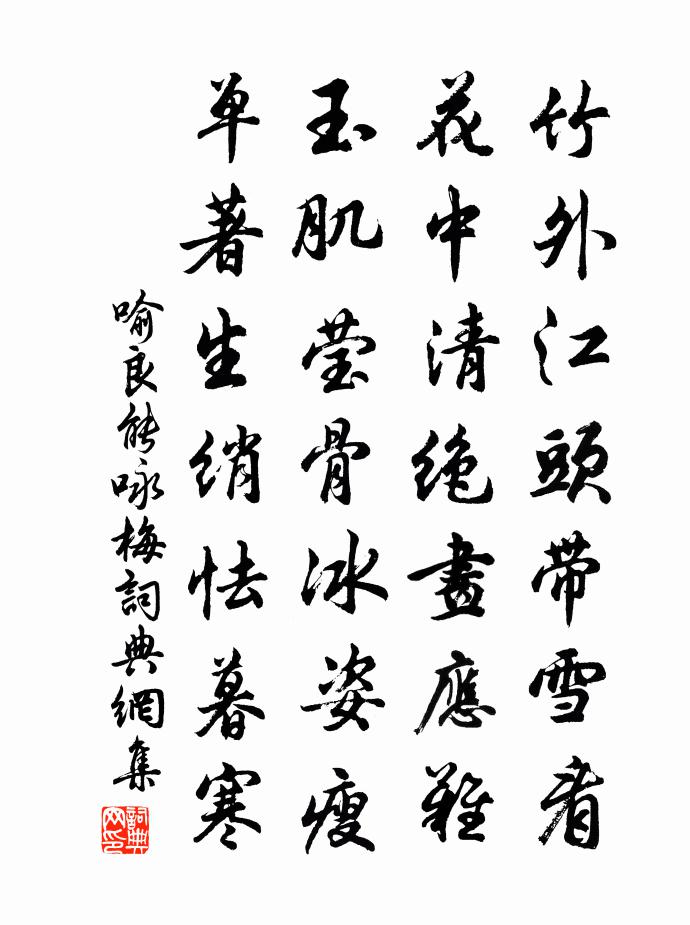 竹外江頭帶雪看
花中清絕畫應難
玉肌瑩骨冰姿瘦
單著生綃怯暮寒
喻良能咏梅詞典網集
詞典网印